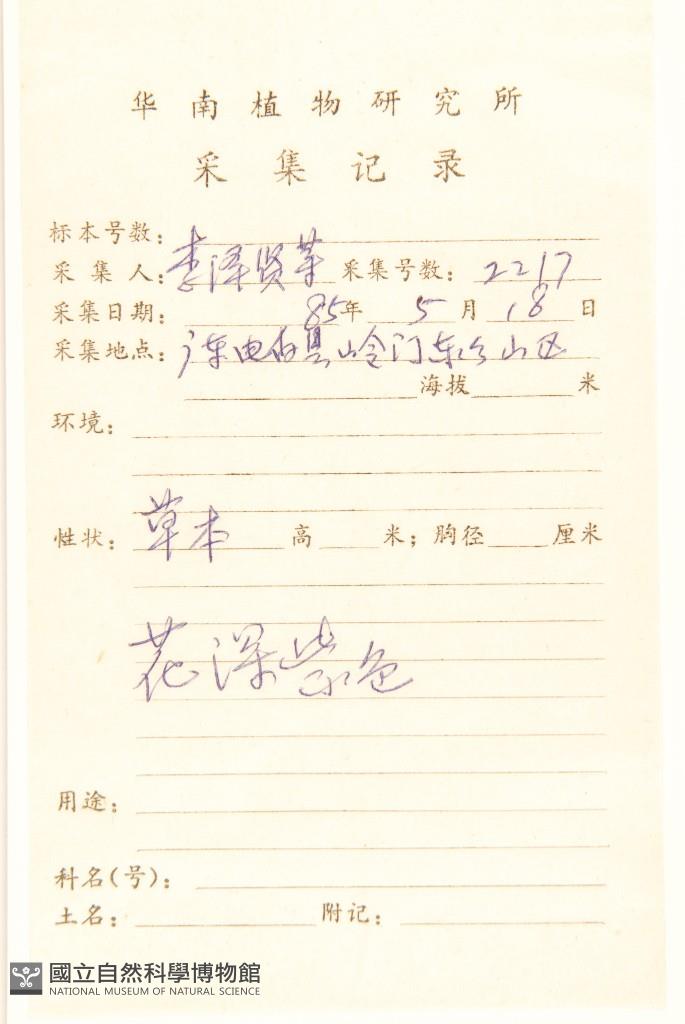 华南植物研究所
采集记录
标本号数：
采集人：李泽贤等 采集号数：2217
采集日期：85年5月18日
采集地点：广东电白县岭门东公山区
海拔 米
环境：
性状：草本 高 米；胸径 厘米
花深紫色
用途：
科名(号)：
土名： 附记：
國立自然科學博物館
NATIONAL MUSEUM OF NATURAL SCIENCE